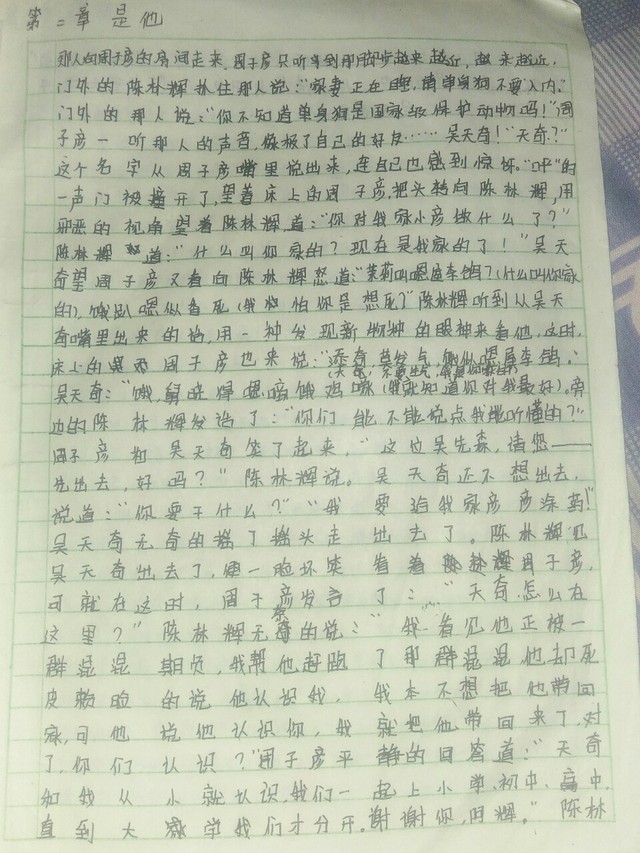 第二章 是他
那人向周子彦的房间走来、周子彦只听拿到那用脚步越来越近，越来越近，
门外的陈林辉拦住那人说：“家妻正在睡，请单身狗不要入内。”
门外的那人说：“你不知道单身狗是国家级保护动物吗！”周
子彦一听那人的声音，像极了自己的好友……吴天奇！“天奇？”
这个名字从周子彦嘴里说出来，连自己也感到惊讶。“呯”的
一声门被撞开了，望着床上的周子彦，把头转向陈林辉，用
邪恶的视角望着陈林辉道：“你对我家小彦做什么了？”
陈林辉怒道：“什么叫你家的？现在是我家的了！”吴天
奇望周子彦又看向陈林辉怒道：“茉莉叫嗯 车鸽？(什么叫你家
的)，饿趴嗯似看死(我 怕你是想死？”陈林辉听到从吴天
奇嘴里出来的话，用一种发现新物种的眼神来看他，这时，
床上的 周子彦也来说：“添奇 发气
吴天奇：“饿，舅 嗯 饿鸡 (我就知道你对我最好)。旁
边的陈林辉发话了：“你们能不能说点我能听懂的？”
周子彦和吴天奇笑了起来，“这位吴先森，请您——
先出去，好吗？”陈林辉说。吴天奇还不想出去，
说道：“你要干什么？”“我要给我家彦彦涂药！”
吴天奇无奇的摇了摇头走出去了。陈林辉见
吴天奇出去了，便一脸坏笑看着 周子彦，
可就在这时，周子彦发言了：“天奇怎么在
这里？”陈林辉无奈的说：“我看见他正被一
群混混期负，我帮他赶跑了那群混混他却死
皮赖脸的说他认识我，我本不想把他带回
家，可他说他认识你，我就把他带回来了，对
了，你们认识？”周子彦平静的回答道：“天奇
和我从小就认识，我们一起上小学、初中、高中，
直到大 学我们才分开。谢谢你，阿辉。”陈林